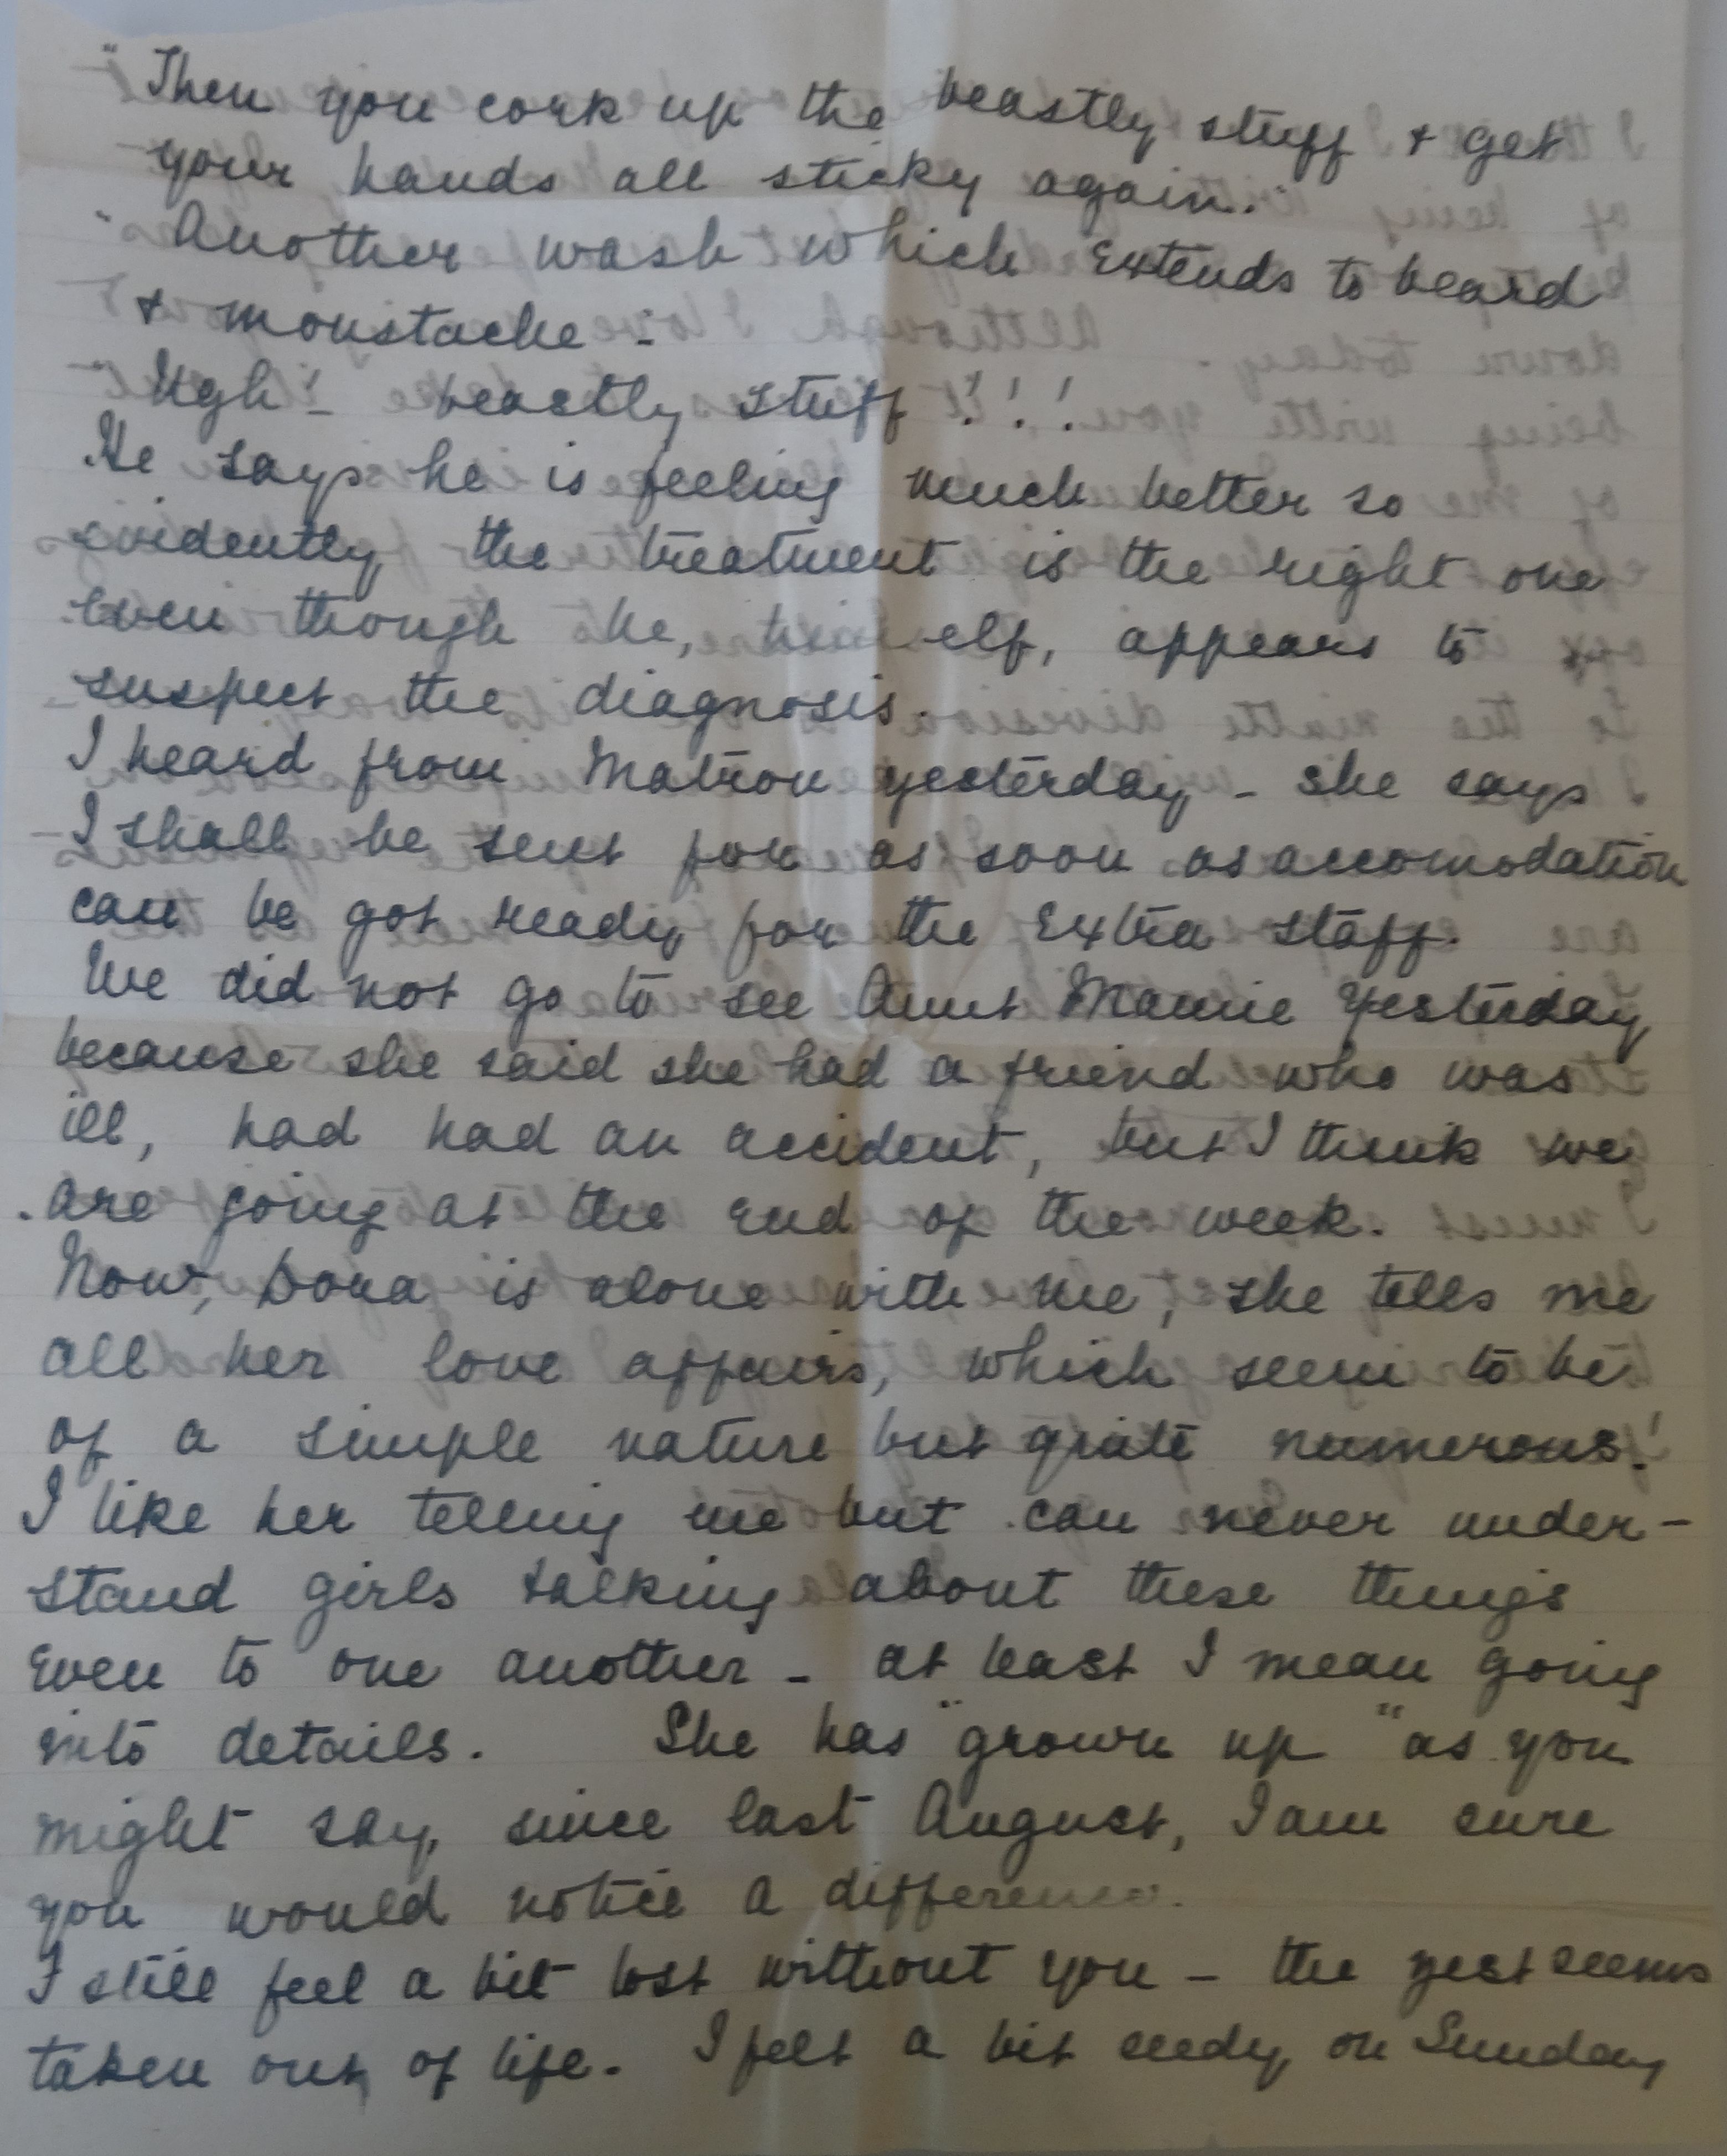 "Then you cork up the beastly stuff + get
your hands all sticky again."
"Another wash which extends to beard
+ moustache -
Ugh! - beastly stuff!!!
He says he is feeling much better so
evidently the treatment is the right one
even though he, himself, appears to
suspect the diagnosis.
I heard from Matron yesterday - she says
I shall be sent for as soon as accomodation
can be got ready for the extra staff.
We did not go to see Aunt Mamie yesterday
because she said she had a friend who was
ill, had had an accident, but I think we
are going at the end of the week.
Now, Dora is alone with me, she tells me
all her love affairs, which seem to be
of a simple nature but quite numerous!
I like her telling me but can never under-
stand girls talking about these things
even to one another - at least I mean going
into details. She has "grown up" as you
might say, since last August, I am sure
you would notice a difference.
I still feel a bit lost without you - the zest seems
taken out of life. I felt a bit seedy on Sunday